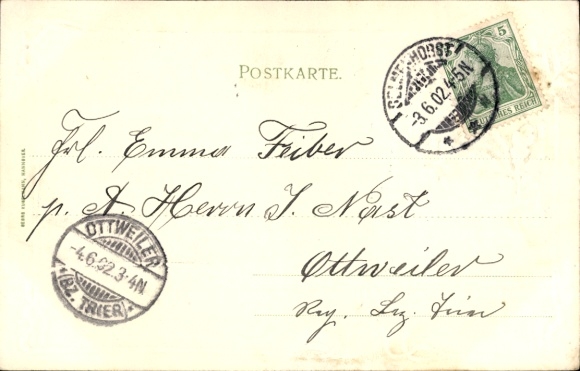 POSTKARTE.
5
DEUTSCHES REICH
DELMENHORST
-3.6.02.4-5N
Frl. Emma Feiber
p. A. Herrn J. Nast
Ottweiler
Reg. Bez. Trier
OTTWEILER
-4.6.02.3-4N
(BZ. TRIER)